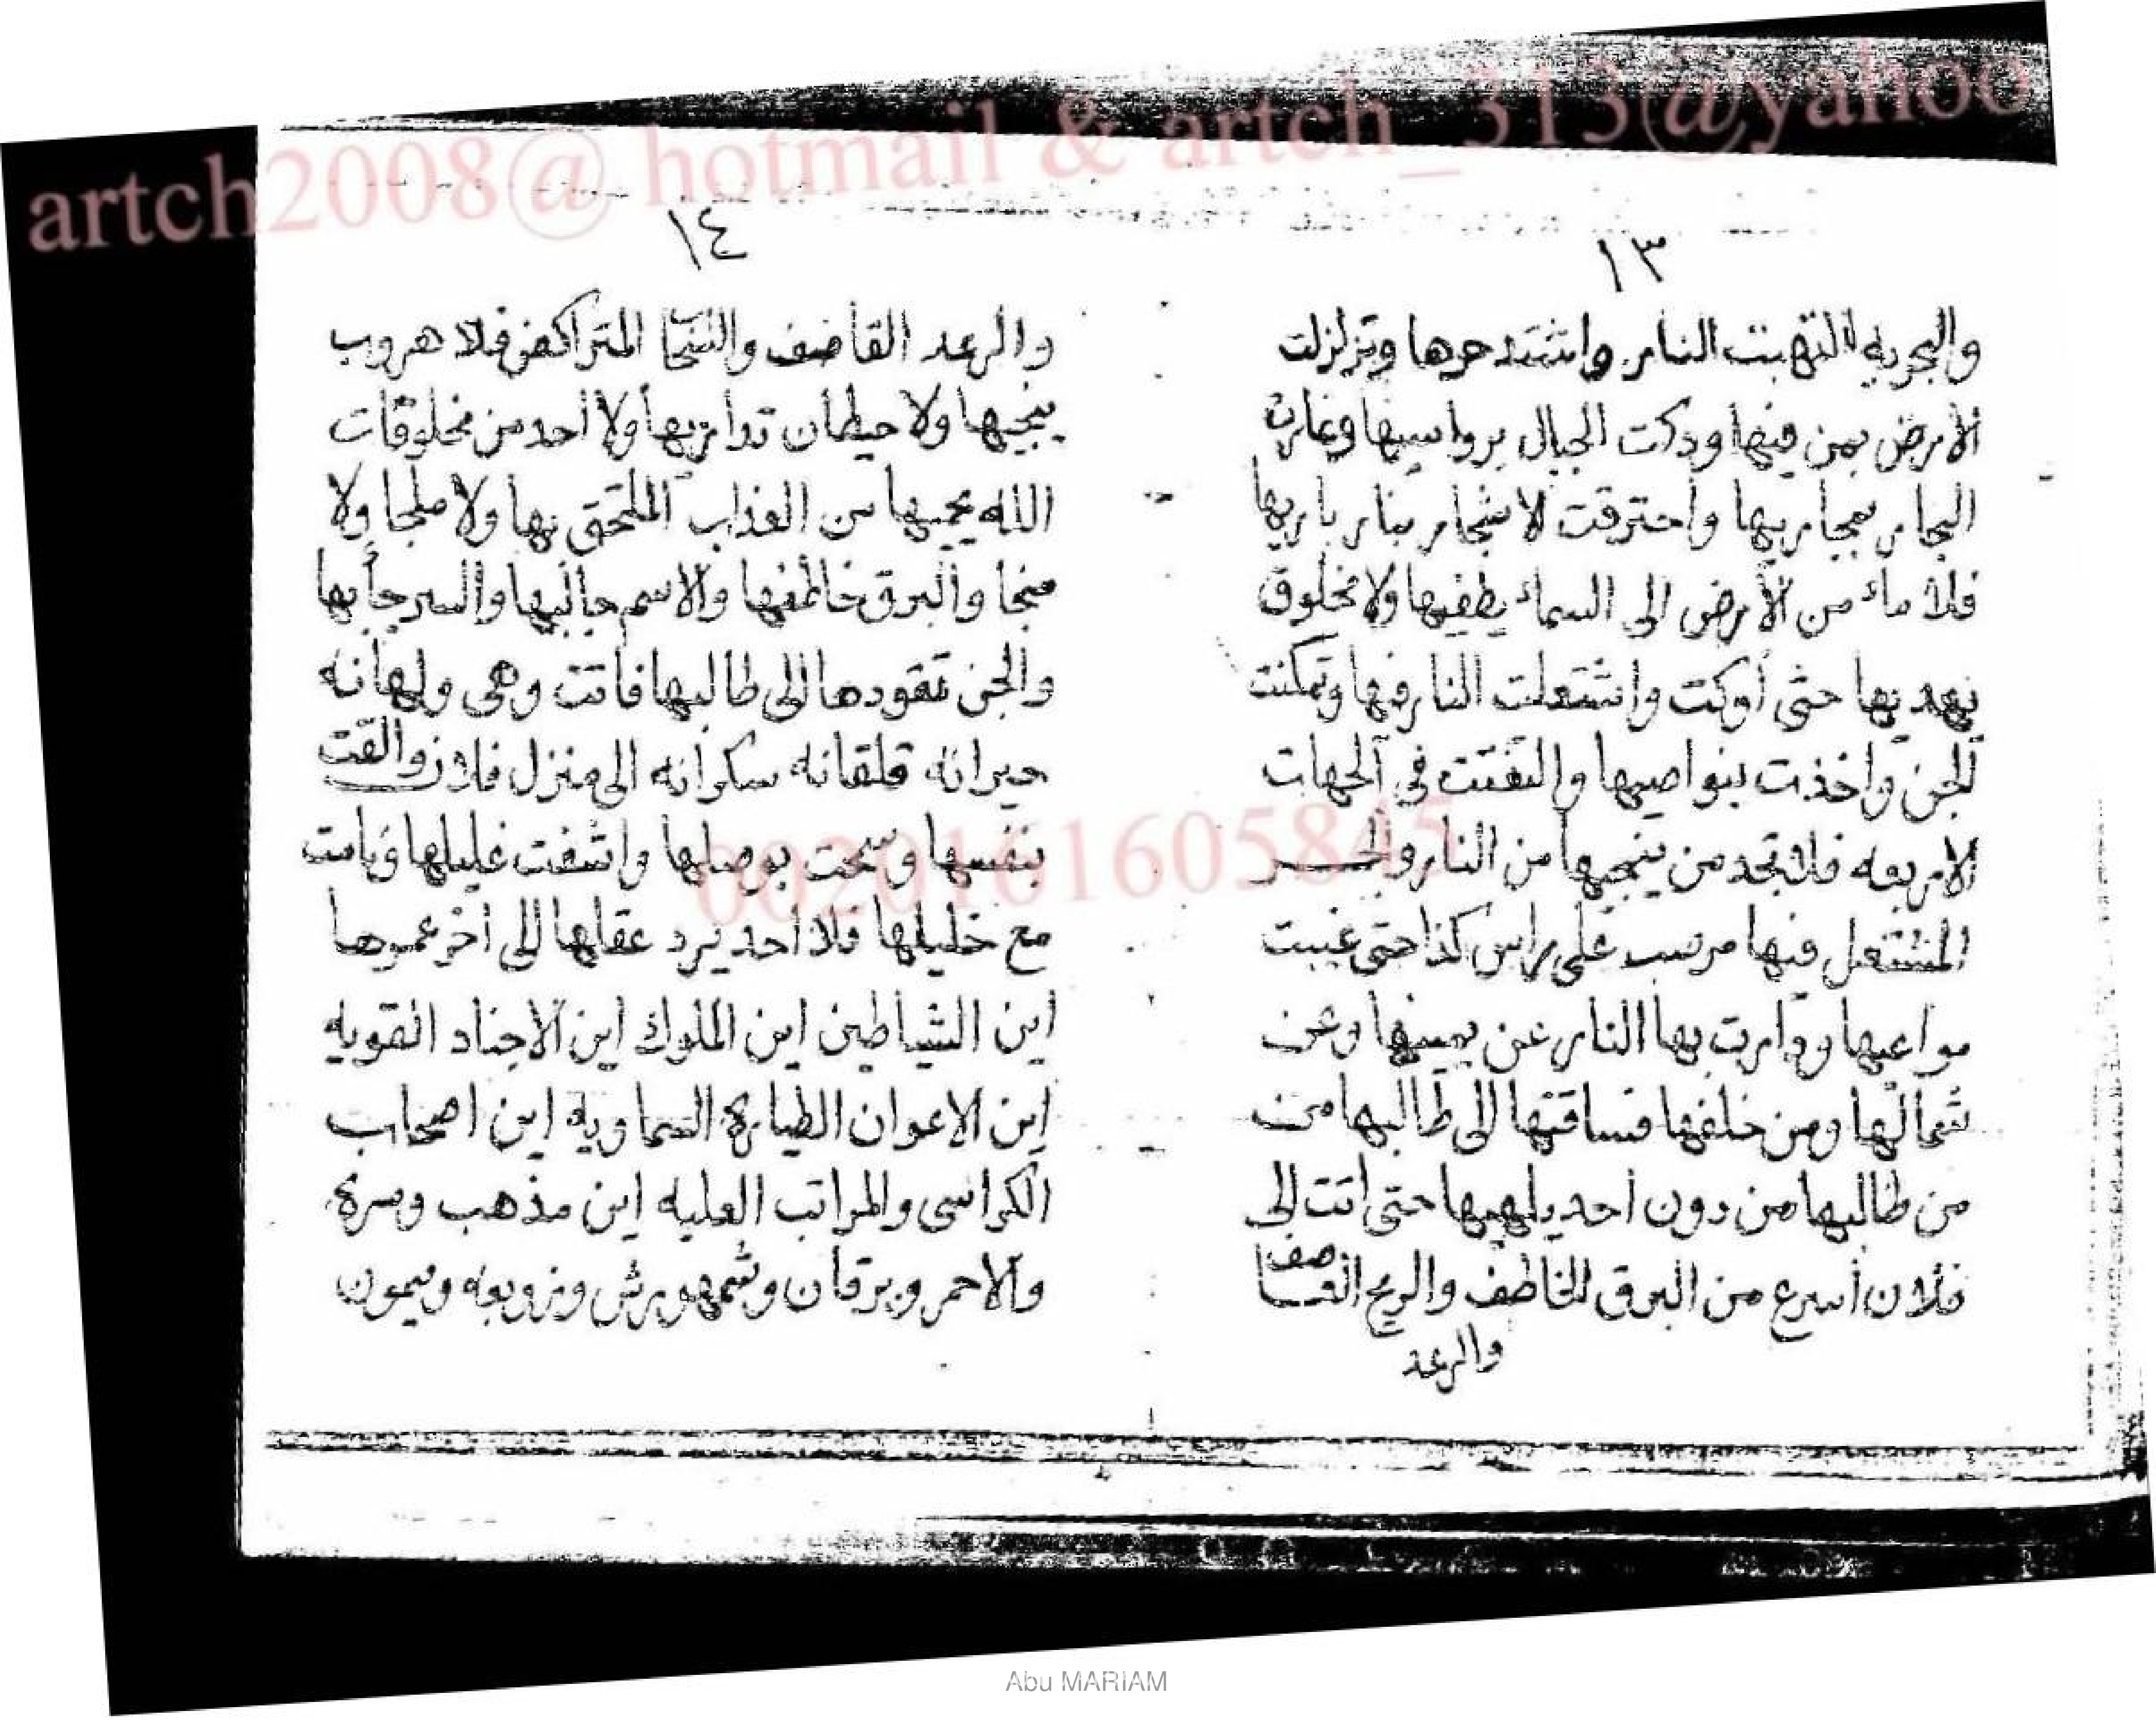 artch2008@ hotmail & artch_313@yahoo
١٣
والبحريه التهبت النار واشتد حرها وتزلزلت
الارض بمن فيها ودكت الجبال برواسيها وغارت
البحار بمجاريها واحترقت الاشجار بنار باريها
فلا ماء من الأرض الى السماء يطفيها ولا مخلوق
يهديها حتى أوكت واشتعلت النار فيها وتمكنت
الجن واخذت بنواصيها والتفتت في الجهات
الاربعه فلا تجد من ينجيها من النار والجـــر
المشتعل فيها مرسب على راس كذا حتى غيبت
مواعيها ودارت بها النار عن يمينها وعن
شمالها ومن خلفها فساقتها الى طالبها من
من طالبها من دون أحد يلهيها حتى اتت الى
فلان أسرع من البرق الخاطف والريح العاصف
والرعد
١٤
والرعد القاضف والسحا المتراكض فلا هروب
ينجيها ولا حيطان تداريها ولا أحد من مخلوقات
الله يحميها من العذاب الملتحق بها ولا ملجا ولا
منجا والبرق خاطفها والاسم جالبها والسر جابها
والجن تقودها الى طالبها فاتت وهى ولهانه
حيرانه قلقانه سكرانه الى منزل فلان والقت
بنفسها وسمحت بوصلها واشفت غليلها وباتت
مع خليلها فلا أحد يرد عقلها الى أخر عمرها
اين الشياطين اين الملوك اين الاجناد القويه
اين الاعوان الطيارة السماويه اين اصحاب
الكراسى والمراتب العليه اين مذهب ومرة
والاحمر وبرقان وشمهورش وزوبعه وميمون
0020161605845
Abu MARIAM